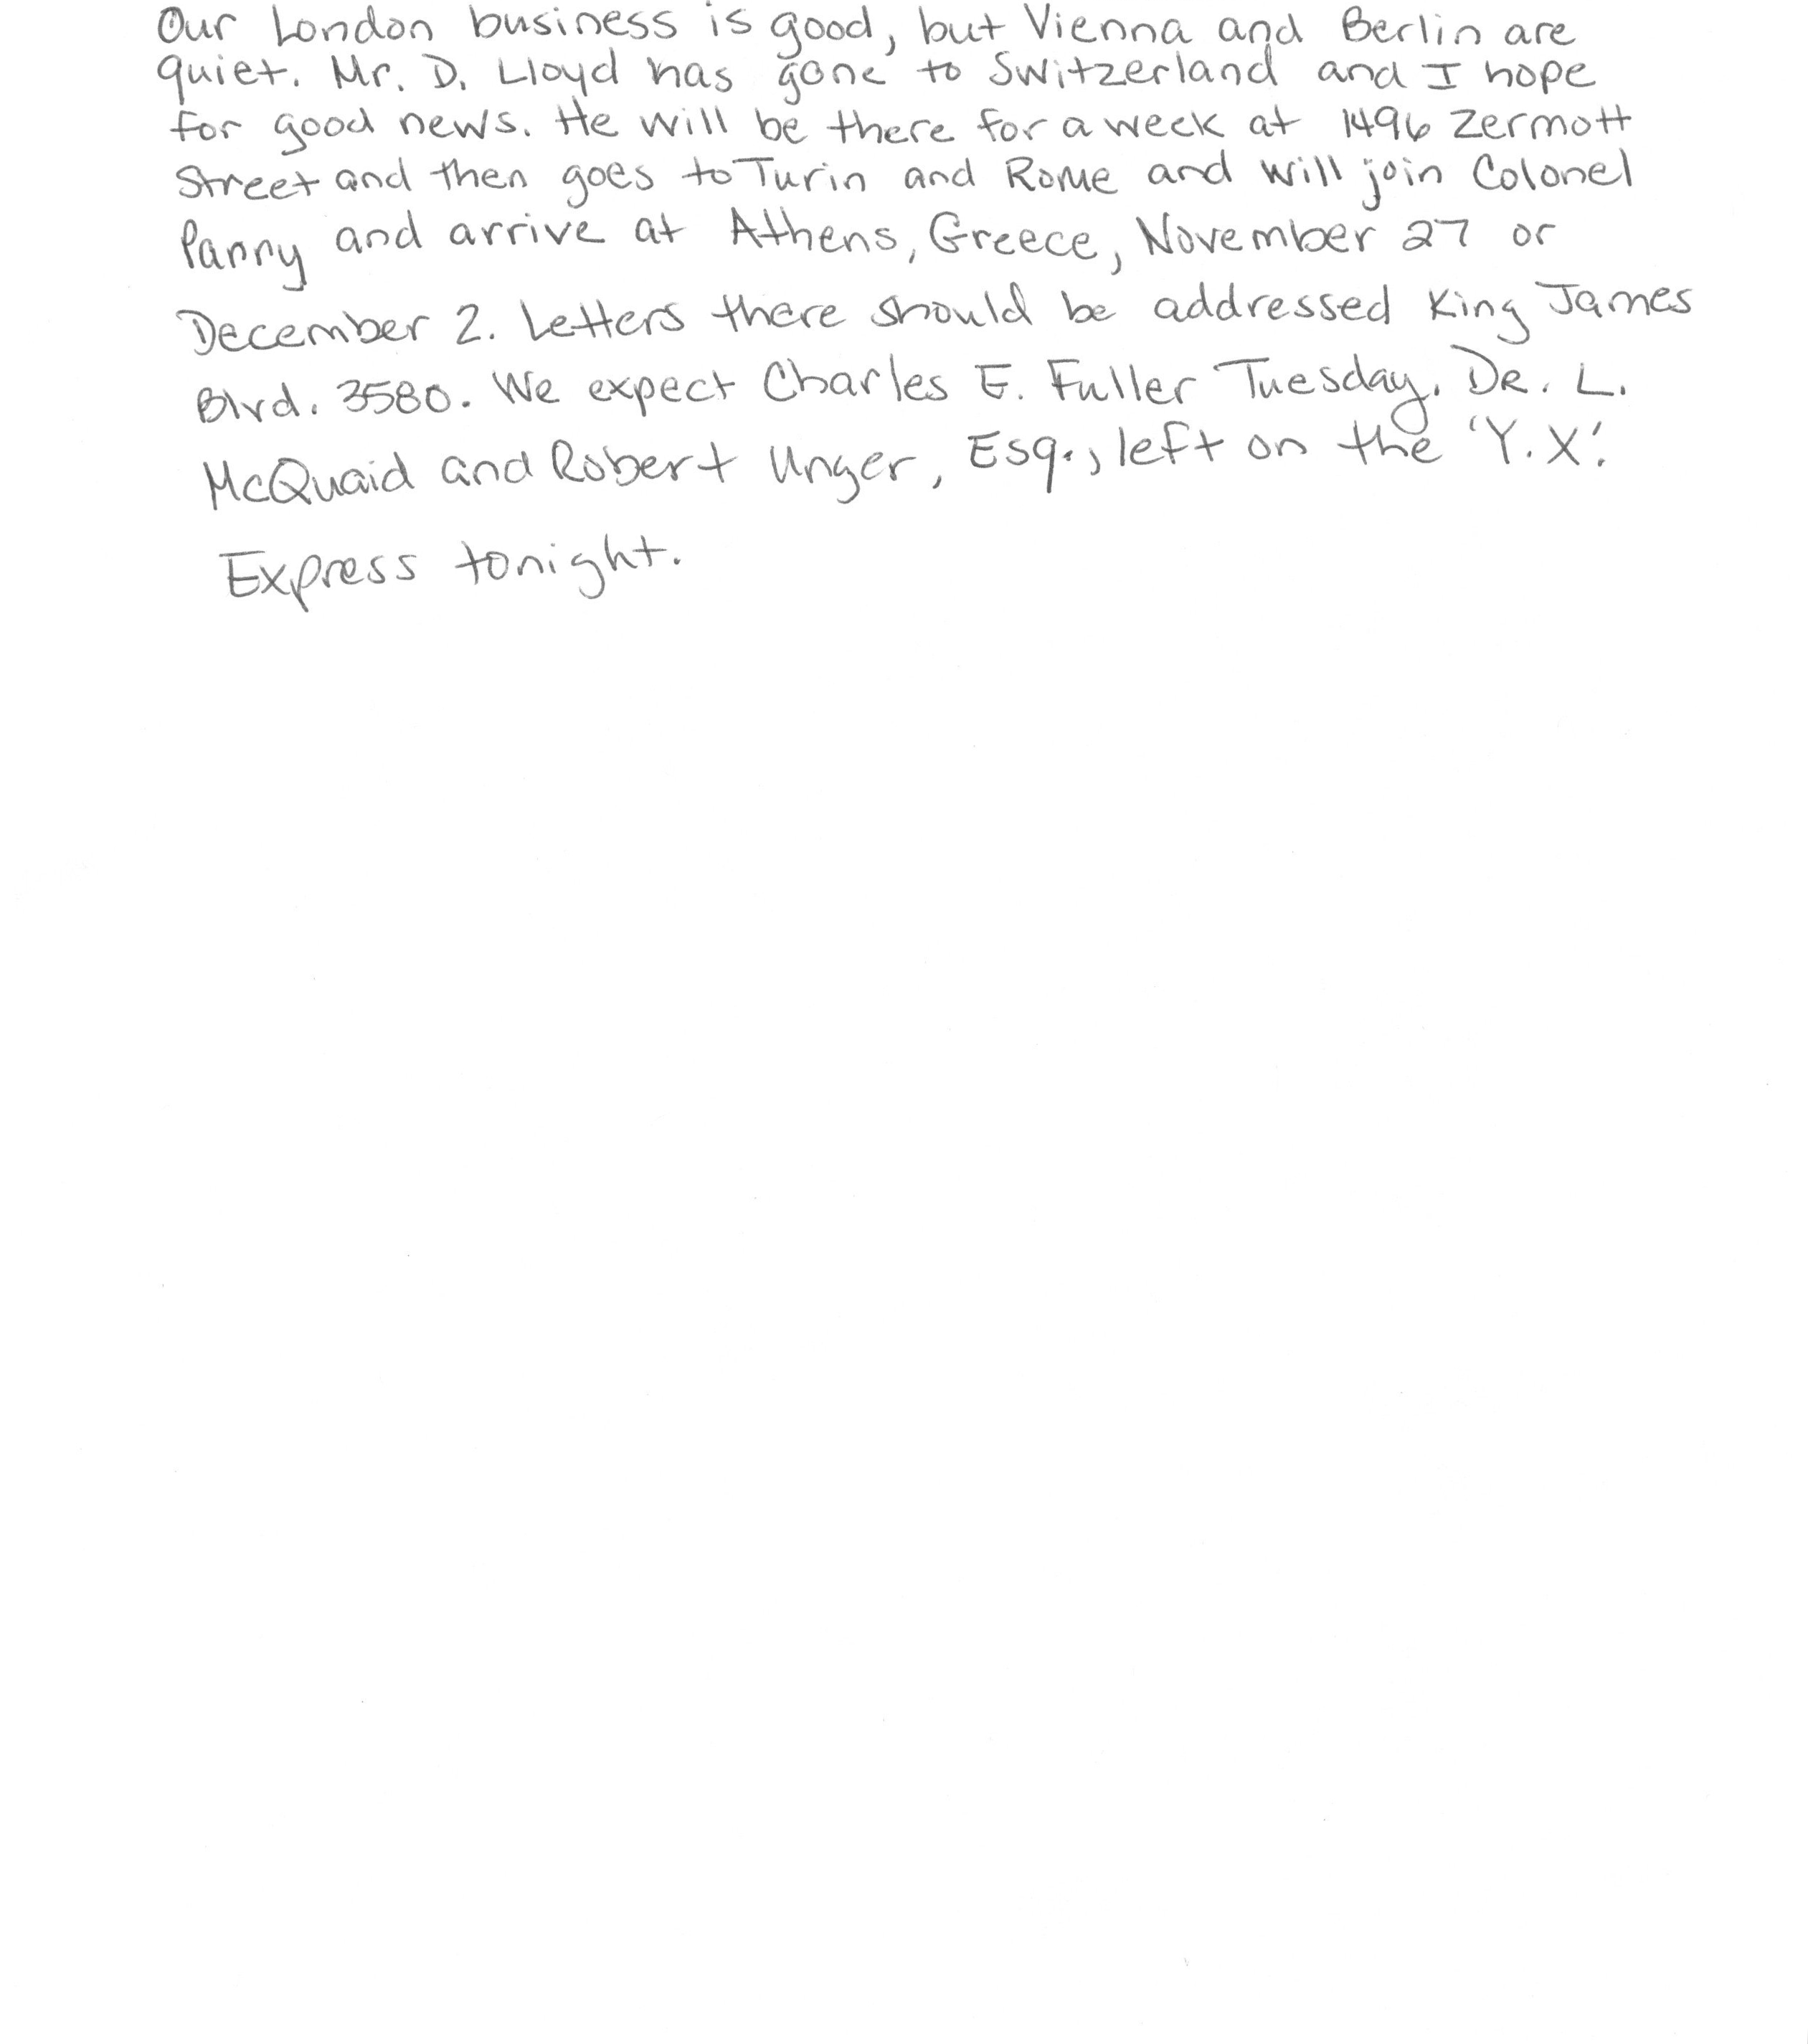 Our London business is good, but Vienna and Berlin are
quiet. Mr. D. Lloyd has gone to Switzerland and I hope
for good news. He will be there for a week at 1496 Zermott
Street and then goes to Turin and Rome and will join Colonel
Parry and arrive at Athens, Greece, November 27 or
December 2. Letters there should be addressed King James
Blvd. 3580. We expect Charles E. Fuller Tuesday. DR. L.
McQuaid and Robert Unger, Esq., left on the 'Y.X.'
Express tonight.